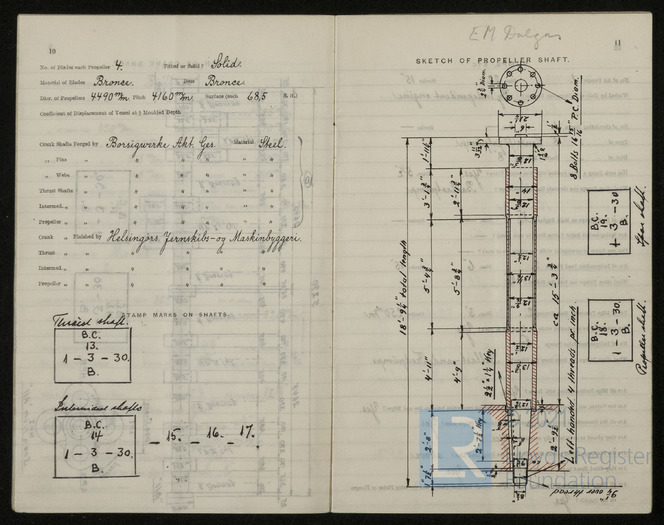 10
No. of Blades each Propeller 4. Fitted or Solid? Solid.
Material of Blades Bronce. Boss Bronce.
Diar. of Propellers 4490 m/m. Pitch 4160 m/m. Surface (each 68,5 S. ft.)
Coefficient of Displacement of Vessel at ¾ Moulded Depth
Crank Shafts Forged by Borsigwerke Akt. Ges. Material Steel.
„ Pins „ „ „ „
„ Webs „ „ „ „
Thrust Shafts „ „ „ „
Intermed. „ „ „ „ „
Propeller „ „ „ „ „
Crank „ Finished by Helsingørs Jernskibs- og Maskinbyggeri.
Thrust „ „ „ „
Intermed. „ „ „ „
Propeller „ „ „ „
STAMP MARKS ON SHAFTS.
Thrust shaft.
B.C.
13.
1 - 3 - 30.
B.
Intermediate shafts
B.C.
14
1 - 3 - 30.
B.
— 15. — 16. — 17.
11
E M Dalgas
SKETCH OF PROPELLER SHAFT.
8 Bolts
P.C. Diam.
18'-9¼" total length
3'-1¾"
2'-11¾"
5'-4¾"
5'-8¾"
4'-11"
4'-9"
ca 15'-3¾"
Left-handed 4 threads pr inch.
over thread
B.C.
19.
1 - 3 - 30
B.
Spare shaft.
B.C.
18.
1 - 3 - 30.
B.
Propeller shaft.
LR
Lloyd's Register
Foundation